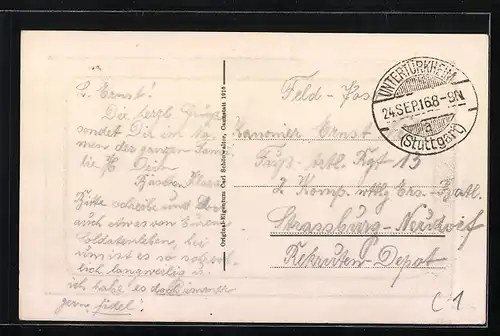 L. Ernst!
Die herzl. Grüße
sendet Dir im Na-
men der ganzen Fami-
lie H. Dein
Bitte schreibe uns
auch etwas von Eurem
Soldatenleben, bei
uns ist es so schreck-
lich langweilig u.
ich habe es doch immer
gern fidel!
Original-Eigentum Carl Schlotwalter, Cannstatt 1910
Feld-Pos
UNTERTÜRKHEIM
24.SEP.16 8-9N
a
(Stuttgart)
Kanonier Ernst
Fußp-artl. Rgt-13
2 Komp. Ers-
Strassburg-Neudorf
Rekruten-Depot
C1